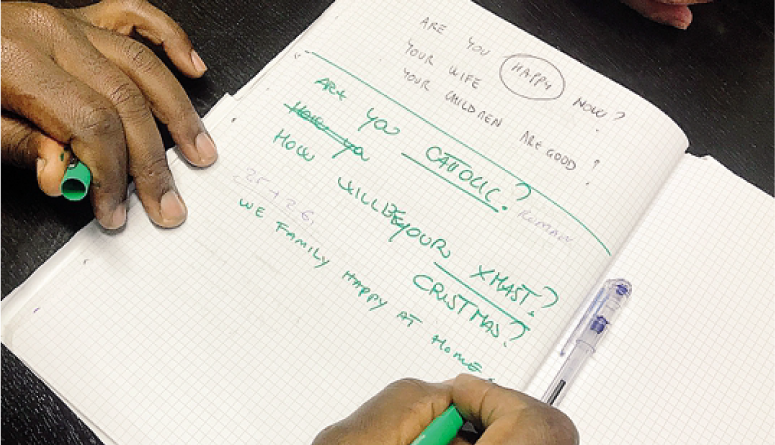 ARE YOU HAPPY NOW?
YOUR WIFE
YOUR CHILDREN ARE GOOD?
ARE YOU CATOLIC?
ROMAN
HOW WILL BE YOUR XMAST?
CRISTMAS?
25 + 26,
WE FAMILY HAPPY AT HOME